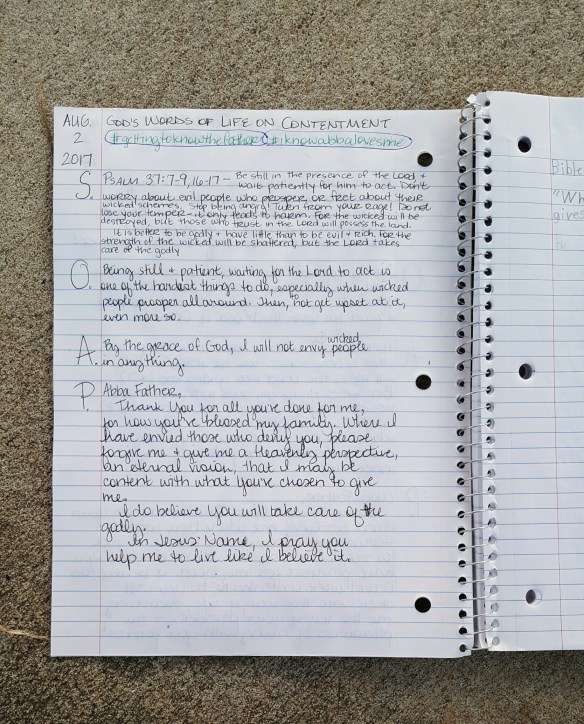 AUG. GOD'S WORDS OF LIFE ON CONTENTMENT
2 #gettingtoknowthefather #iknowabbalovesme
2017
S. PSALM 37:7-9, 16-17 - Be still in the presence of the Lord, +
wait patiently for him to act. Don't
worry about evil people who prosper or fret about their
wicked schemes. Stop being angry! Turn from your rage! Do not
lose your temper - it only leads to harm. For the wicked will be
destroyed, but those who trust in the Lord will possess the land.
It is better to be godly + have little than to be evil + rich. For the
strength of the wicked will be shattered, but the Lord takes
care of the godly
O. Being still + patient, waiting for the Lord to act is
one of the hardest things to do, especially when wicked
people prosper all around. Then, to not get upset at it,
even more so.
A. By the grace of God, I will not envy wicked people
in anything.
P. Abba Father,
Thank You for all you've done for me,
for how you've blessed my family. Where I
have envied those who deny you, please
forgive me + give me a Heavenly perspective,
an eternal vision, that I may be
content with what you've chosen to give
me.
I do believe You will take care of the
godly.
In Jesus' Name, I pray you
help me to live like I believe it.
Bible
"Wh
give